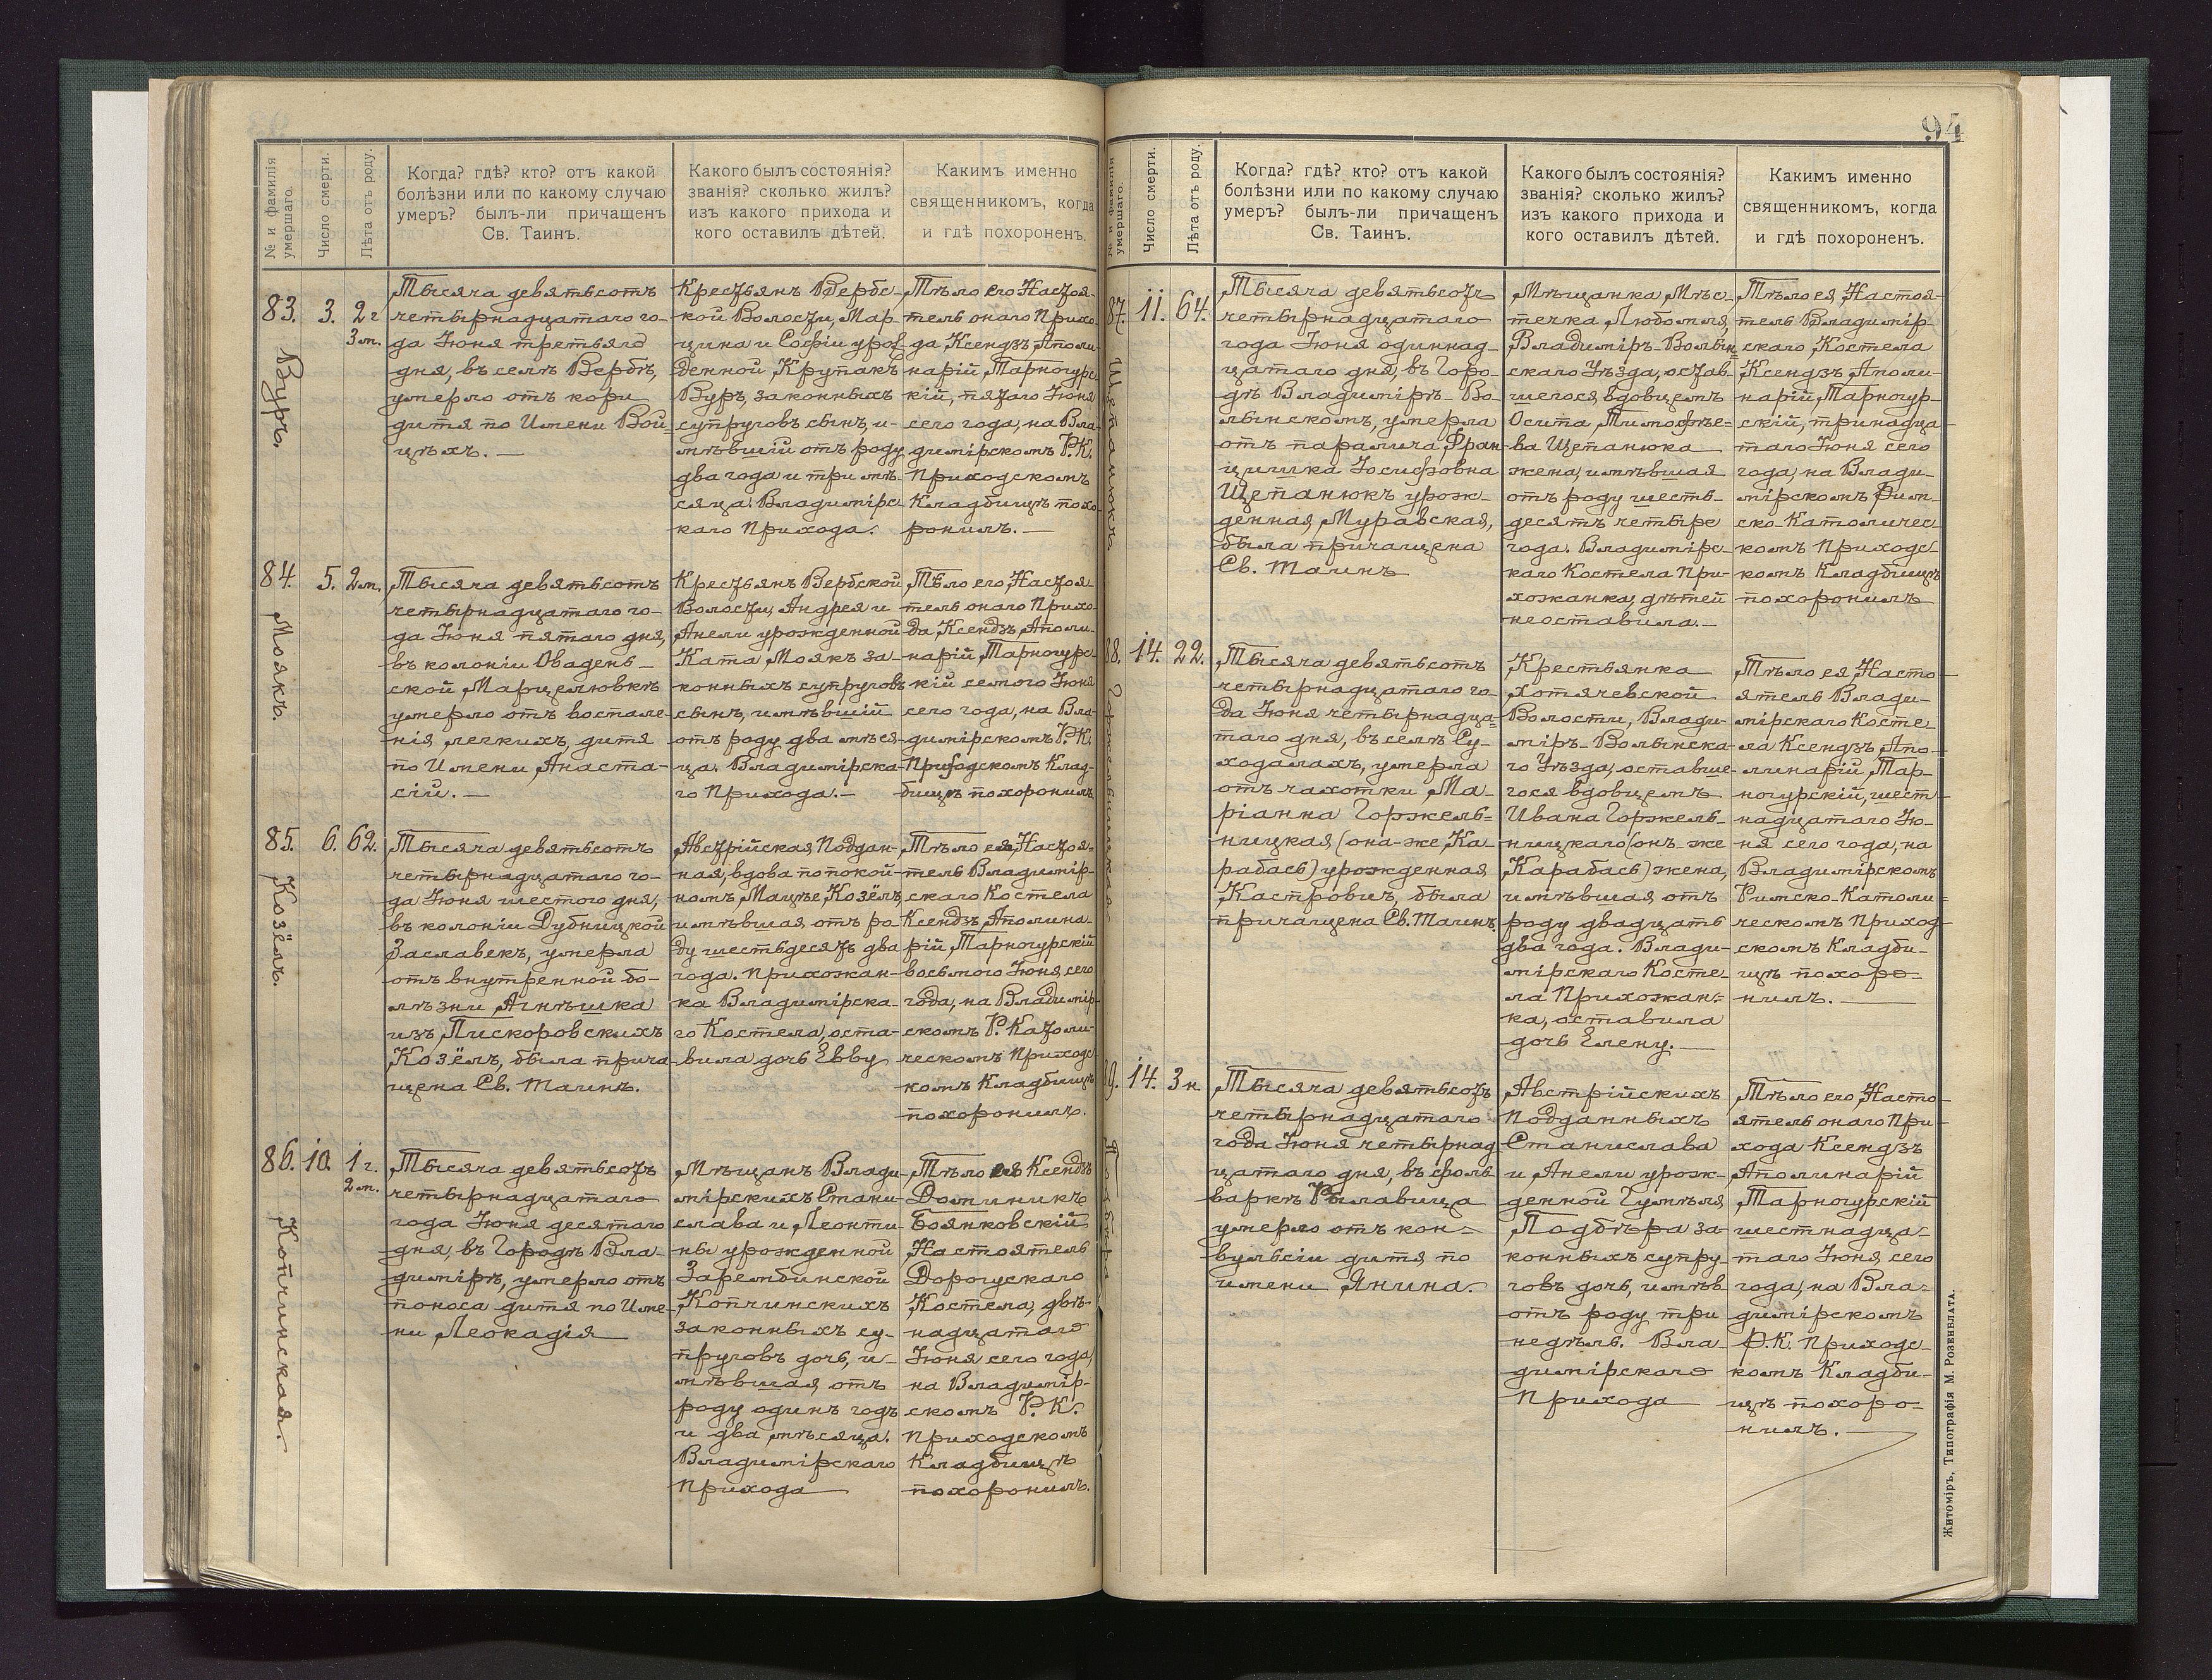 94
№ и фамилія умершаго.
Число смерти.
Лѣта отъ роду.
Когда? гдѣ? кто? отъ какой
болѣзни или по какому случаю
умеръ? былъ-ли причащенъ
Св. Таинъ.
Какого былъ состоянія?
званія? сколько жилъ?
изъ какого прихода и
кого оставилъ дѣтей.
Какимъ именно
священникомъ, когда
и гдѣ похороненъ.
83.
Вуръ.
3.
2 г
3 м.
Тысяча девятьсотъ
четырнадцатаго го-
да Іюня третьяго
дня, въ селѣ Вербѣ,
умерло отъ кори
дитя по Имени Вой-
цѣхъ. —
Крестьянъ Вербс-
кой Волости, Мар-
цина и Софіи урож-
денной Крупакъ
Вуръ, законныхъ
супруговъ сынъ, и-
мѣвшій отъ роду
два года и три мѣ-
сяца. Владимірс-
каго Прихода.
Тѣло его Настоя-
тель онаго Прихо-
да Ксендзъ Аполи-
нарій Тарногурс-
кій, пятаго Іюня
сего года, на Вла-
димірскомъ Р. К.
Приходскомъ
Кладбищѣ похо-
ронилъ. —
84.
Моякъ.
5.
2 м.
Тысяча девятьсотъ
четырнадцатаго го-
да Іюня пятаго дня,
въ колоніи Овадень-
ской Марцелювкѣ
умерло отъ воспале-
нія легкихъ, дитя
по Имени Анаста-
сій. —
Крестьянъ Вербской
Волости, Андрея и
Анели урожденной
Ката Моякъ за-
конныхъ супруговъ
сынъ, имѣвшій
отъ роду два мѣся-
ца. Владимірска-
го Прихода. —
Тѣло его, Настоя-
тель онаго Прихо-
да, Ксендзъ Аполи-
нарій Тарногурс-
кій семого Іюня
сего года, на Вла-
димірскомъ Р. К.
Приходскомъ Клад-
бищѣ похоронилъ
85.
Козёлъ.
6.
62.
Тысяча девятьсотъ
четырнадцатаго го-
да Іюня шестого дня,
въ колоніи Дубницкой
Заславекъ, умерла
отъ внутренной бо-
лѣзни Агнѣшка
изъ Пискоровскихъ
Козёлъ, была прича-
щена Св. Таинъ.
Австрійская Поддан-
ная, вдова по покой-
номъ Мацѣе Козёлъ,
имѣвшая отъ ро-
ду шестьдесятъ два
года. Прихожан-
ка Владимірска-
го Костела, оста-
вила дочь Евву
Тѣло ея, Настоя-
тель Владимір-
скаго Костела
Ксендзъ Аполина-
рій Тарногурскій
восьмого Іюня сего
года, на Владимір-
скомъ Р. Католи-
ческомъ Приходс-
комъ Кладбищѣ
похоронилъ.
86.
Копчинская.
10.
1 г.
2 м.
Тысяча девятьсотъ
четырнадцатаго
года Іюня десятаго
дня, въ Городѣ Вла-
димірѣ, умерло отъ
поноса дитя по Име-
ни Леокадія
Мѣщанъ Влади-
мірскихъ Стани-
слава и Леонти-
ны урожденной
Зарембинской
Копчинскихъ
законныхъ су-
пруговъ дочь, и-
мѣвшая отъ
роду одинъ годъ
и два мѣсяца.
Владимірскаго
Прихода
Тѣло ея Ксендзъ
Доминикъ
Боянковскій
Настоятель
Дорогускаго
Костела, двѣ-
надцатаго
Іюня сего года,
на Владимір-
скомъ Р. К.
Приходскомъ
Кладбищѣ
похоронилъ.
№ и фамилія умершаго.
Число смерти.
Лѣта отъ роду.
Когда? гдѣ? кто? отъ какой
болѣзни или по какому случаю
умеръ? былъ-ли причащенъ
Св. Таинъ.
Какого былъ состоянія?
званія? сколько жилъ?
изъ какого прихода и
кого оставилъ дѣтей.
Какимъ именно
священникомъ, когда
и гдѣ похороненъ.
87.
Щепанюкъ
11.
64.
Тысяча девятьсотъ
четырнадцатаго
года Іюня одиннад-
цатаго дня, въ Горо-
дѣ Владимірѣ-Во-
лынскомъ, умерла
отъ паралича Фран-
цишка Іосифовна
Щепанюкъ урож-
денная Муравская,
была причащена
Св. Таинъ
Мѣщанка Мѣс-
течка Любомля,
Владиміръ-Волын-
скаго Уѣзда, остав-
шегося вдовцемъ
Осипа Тимофѣе-
ва Щепанюка
жена, имѣвшая
отъ роду шесть-
десятъ четыре
года. Владимірс-
каго Костела При-
хожанка, дѣтей
неоставила. —
Тѣло ея, Настоя-
тель Владимір-
скаго Костела
Ксендзъ Аполи-
нарій Тарногур-
скій, тринадца-
таго Іюня сего
года, на Влади-
мірскомъ Рим-
ско-Католичес-
комъ Приходс-
комъ Кладбищѣ
похоронилъ
88.
Горжельницкая
14.
22.
Тысяча девятьсотъ
четырнадцатаго го-
да Іюня четырнадца-
таго дня, въ селѣ Су-
ходалахъ, умерла
отъ чахотки Ма-
ріанна Горжель-
ницкая (она-же Ка-
рабась) урожденная
Кастровичъ, была
причащена Св. Таинъ.
Крестьянка
Хотячевской
Волости, Влади-
міръ-Волынска-
го Уѣзда, оставше-
гося вдовцемъ
Ивана Горжель-
ницкаго (онъ-же
Карабась) жена,
имѣвшая отъ
роду двадцать
два года. Влади-
мірскаго Косте-
ла Прихожан-
ка, оставила
дочь Елену. —
Тѣло ея, Насто-
ятель Влади-
мірскаго Косте-
ла Ксендзъ Апо-
линарій Тар-
ногурскій, шест-
надцатаго Ію-
ня сего года, на
Владимірскомъ
Римско-Католи-
ческомъ Приход-
скомъ Кладби-
щѣ похоро-
нилъ. —
89.
Подбѣра
14.
3 н.
Тысяча девятьсотъ
четырнадцатаго
года Іюня четырнад-
цатаго дня, въ фоль-
варкѣ Рылавица
умерло отъ кон-
вульсіи дитя по
имени Янина.
Австрійскихъ
Подданныхъ
Станислава
и Анели урож-
денной Гумѣля
Подбѣра за-
конныхъ супру-
говъ дочь, имѣв
отъ роду три
недѣль. Вла-
димірскаго
Прихода
Тѣло его, Насто-
ятель онаго При-
хода Ксендзъ
Аполинарій
Тарногурскій
шестнадца-
таго Іюня сего
года, на Вла-
димірскомъ
Р. К. Приходс-
комъ Кладби-
щѣ похоро-
нилъ. —
Житоміръ, Типографія М. Розенблата.